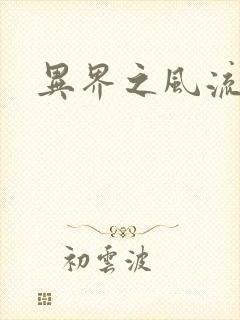 異界之風流
初雲波